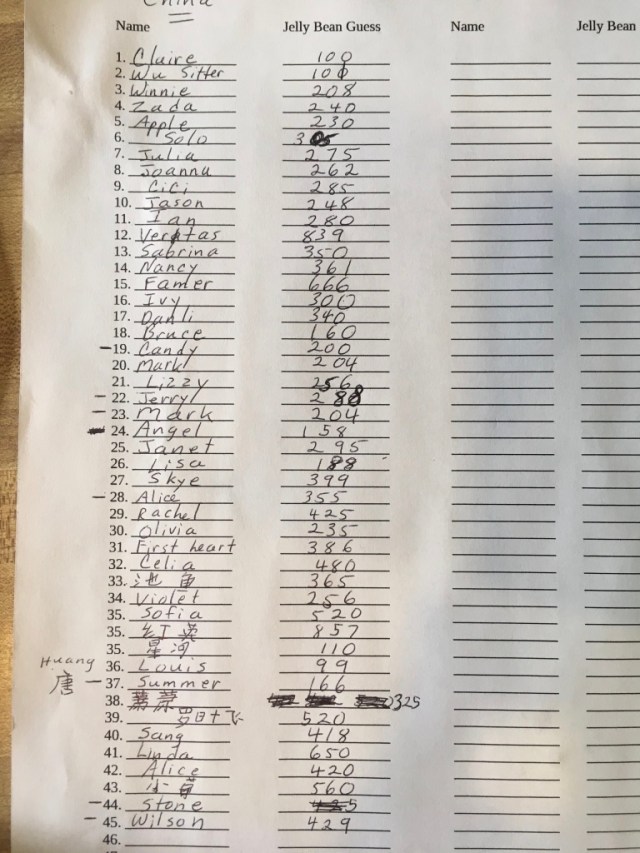 China
Name Jelly Bean Guess Name Jelly Bean
1. Claire 100
2. Wu Sitter 100
3. Winnie 208
4. Zada 240
5. Apple 230
6. Solo 305
7. Julia 275
8. Joanna 262
9. CiCi 285
10. Jason 248
11. Ian 280
12. Veritas 839
13. Sabrina 350
14. Nancy 361
15. Famer 666
16. Ivy 300
17. Danli 340
18. Bruce 160
19. Candy 200
20. Mark 204
21. Lizzy 256
22. Jerry 288
23. Mark 204
24. Angel 158
25. Janet 295
26. Lisa 188
27. Skye 399
28. Alice 355
29. Rachel 425
30. Olivia 235
31. First heart 386
32. Celia 480
33. 365
34. Violet 256
35. Sofia 520
35. 857
35. 星河 110
Huang 36. Louis 99
唐 37. Summer 166
38. 325
39. 520
40. Sang 418
41. Linda 650
42. Alice 420
43. 560
44. Stone
45. Wilson 429
46.